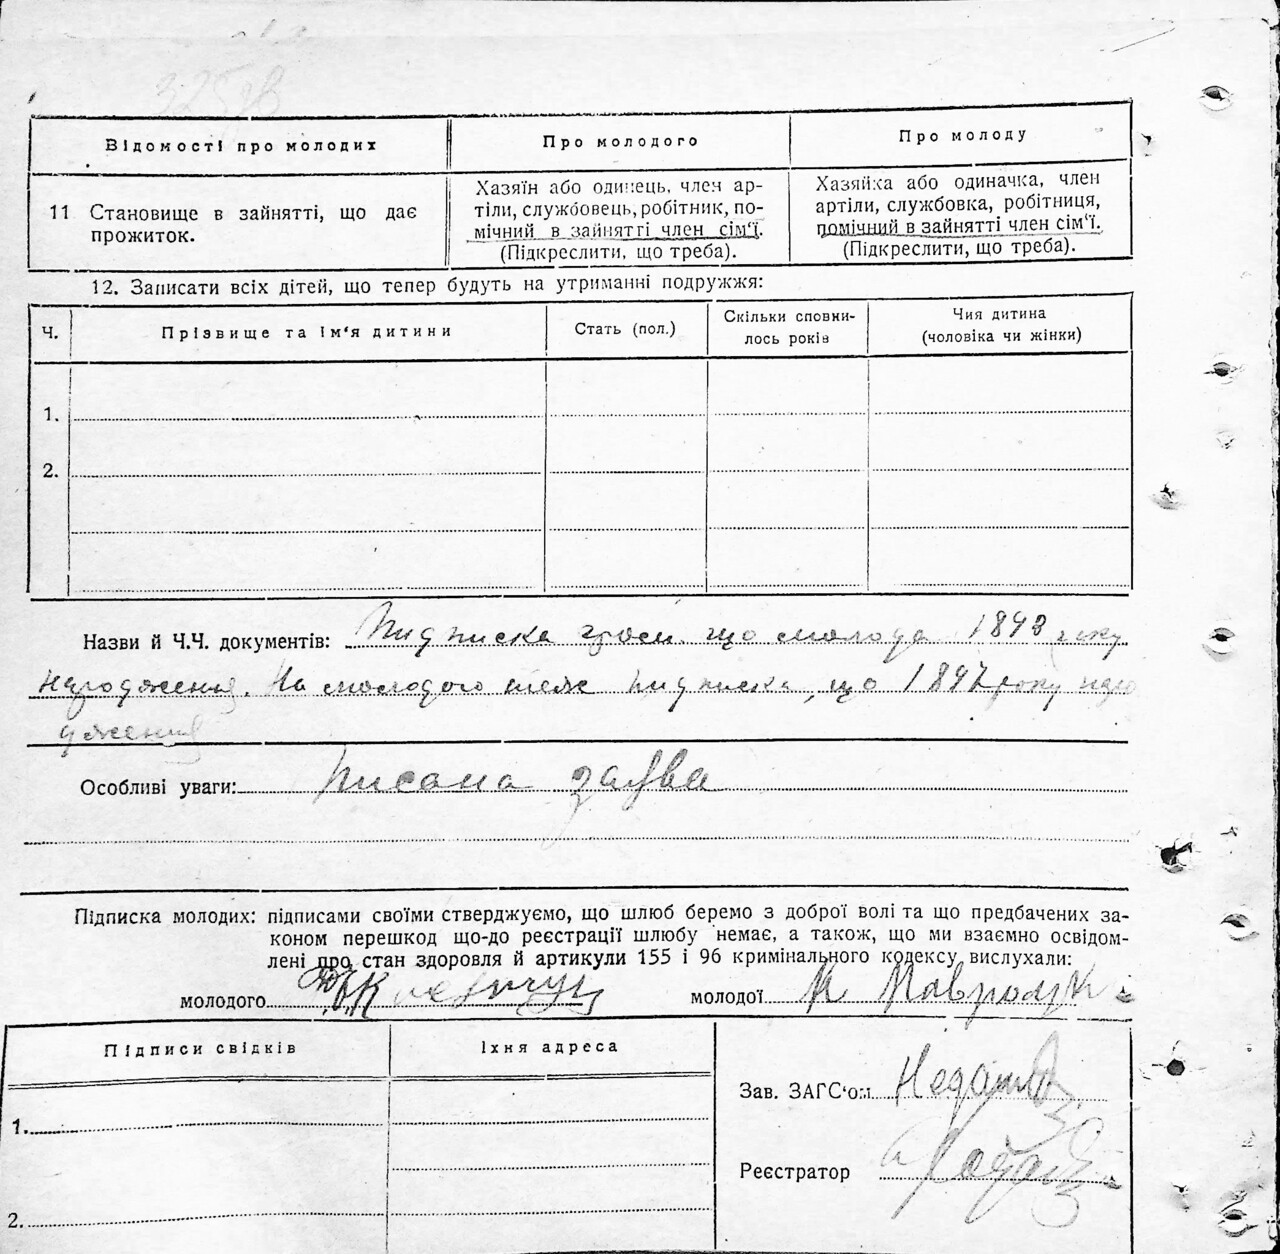 Відомості про молодих
Про молодого
Про молоду
11 Становище в зайнятті, що дає
прожиток.
Хазяїн або одинець, член ар-
тіли, службовець, робітник, по-
мічний в зайнятті член сім'ї.
(Підкреслити, що треба).
Хазяйка або одиначка, член
артіли, службовка, робітниця,
помічний в зайнятті член сім'ї.
(Підкреслити, що треба).
12. Записати всіх дітей, що тепер будуть на утриманні подружжя:
Ч.
Прізвище та ім'я дитини
Стать (пол.)
Скільки сповни-
лось років
Чия дитина
(чоловіка чи жінки)
1.
2.
Назви й Ч.Ч. документів: Підписка що молода 1893 року
народження. На молодого теж підписка, що 1897 року наро
дження
Особливі уваги: писана заява
Підписка молодих: підписами своїми стверджуємо, що шлюб беремо з доброї волі та що предбачених за-
коном перешкод що-до реєстрації шлюбу немає, а також, що ми взаємно освідом-
лені про стан здоровля й артикули 155 і 96 кримінального кодексу вислухали:
молодого
молодої М
Підписи свідків
Їхня адреса
1.
2.
Зав. ЗАГС'ом
Реєстратор